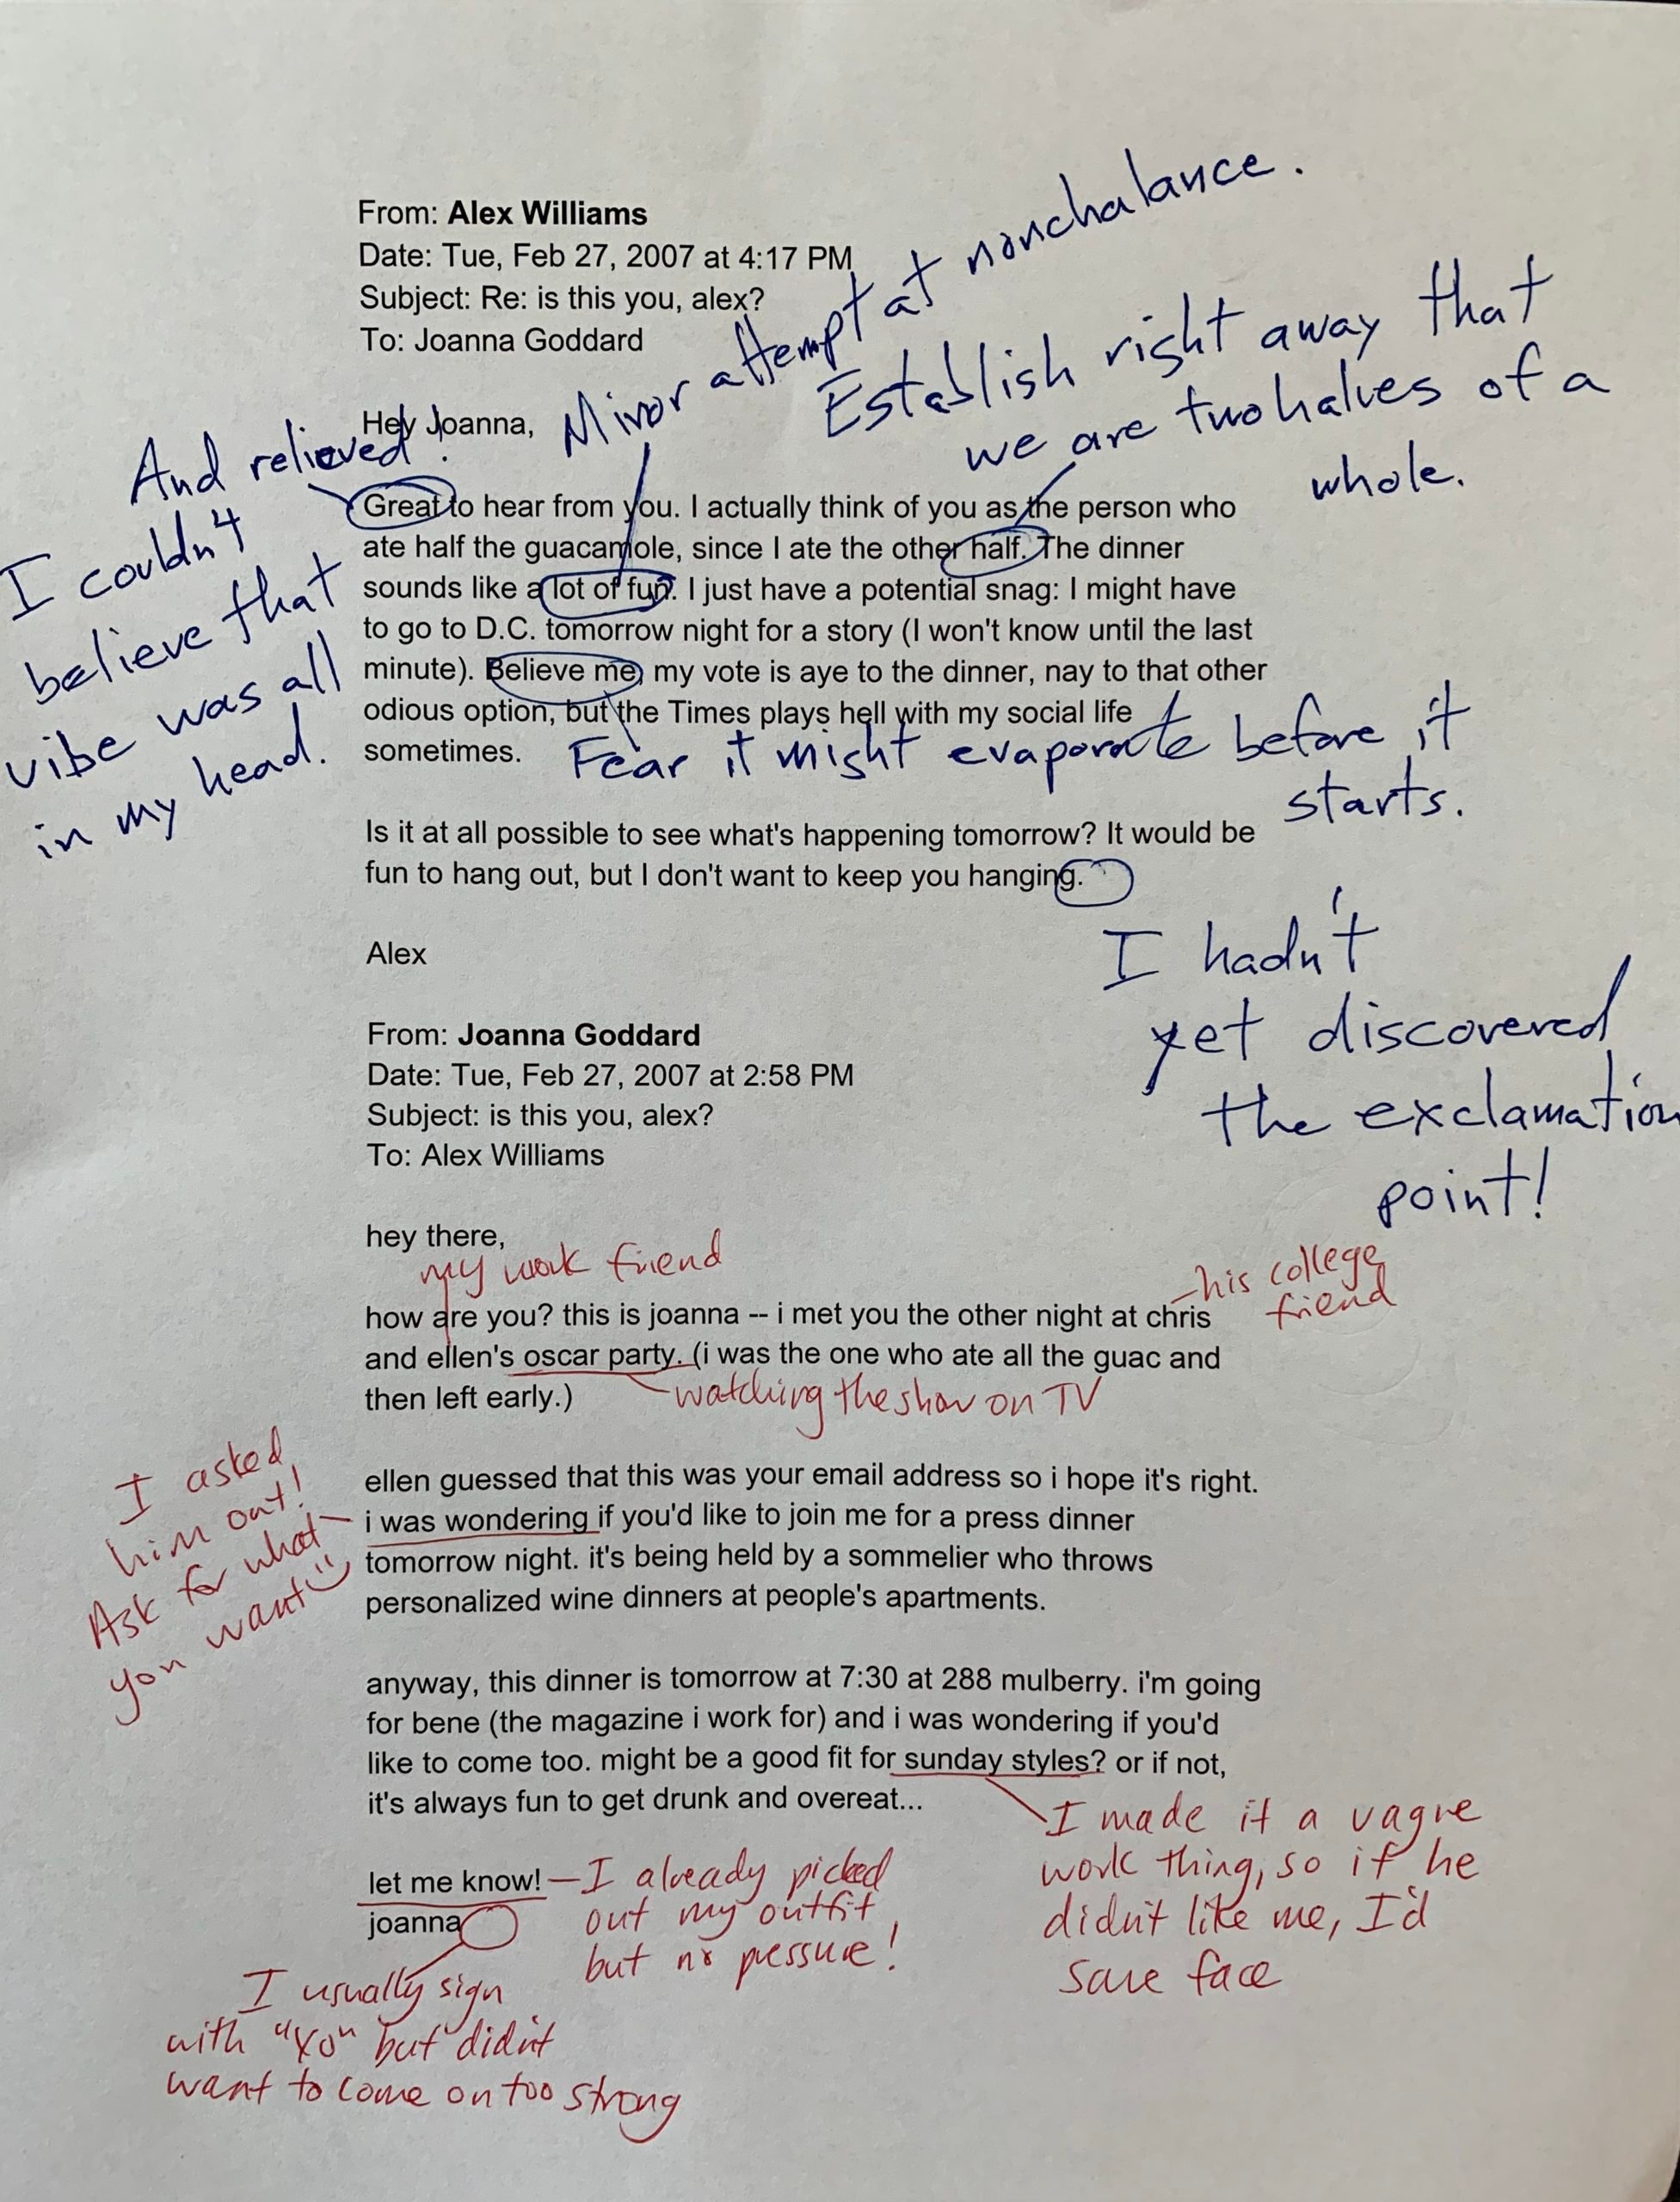 From: Alex Williams
Date: Tue, Feb 27, 2007 at 4:17 PM
Subject: Re: is this you, alex?
To: Joanna Goddard
Minor attempt at nonchalance.
Establish right away that
we are two halves of a
whole.
Hey Joanna,
And relieved!
I couldn't
believe that
vibe was all
in my head.
Great to hear from you. I actually think of you as the person who
ate half the guacamole, since I ate the other half. The dinner
sounds like a lot of fun. I just have a potential snag: I might have
to go to D.C. tomorrow night for a story (I won't know until the last
minute). Believe me, my vote is aye to the dinner, nay to that other
odious option, but the Times plays hell with my social life
sometimes.
Fear it might evaporate before it
starts.
Is it at all possible to see what's happening tomorrow? It would be
fun to hang out, but I don't want to keep you hanging.
I hadn't
yet discovered
the exclamation
point!
Alex
From: Joanna Goddard
Date: Tue, Feb 27, 2007 at 2:58 PM
Subject: is this you, alex?
To: Alex Williams
hey there,
my work friend
his college
friend
how are you? this is joanna -- i met you the other night at chris
and ellen's oscar party. (i was the one who ate all the guac and
then left early.)
watching the show on TV
I asked
him out!
Ask for what
you want :)
ellen guessed that this was your email address so i hope it's right.
i was wondering if you'd like to join me for a press dinner
tomorrow night. it's being held by a sommelier who throws
personalized wine dinners at people's apartments.
anyway, this dinner is tomorrow at 7:30 at 288 mulberry. i'm going
for bene (the magazine i work for) and i was wondering if you'd
like to come too. might be a good fit for sunday styles? or if not,
it's always fun to get drunk and overeat...
I made it a vague
work thing, so if he
didn't like me, I'd
save face
let me know!
I already picked
out my outfit,
but no pressure!
joanna
I usually sign
with "XO" but didn't
want to come on too strong